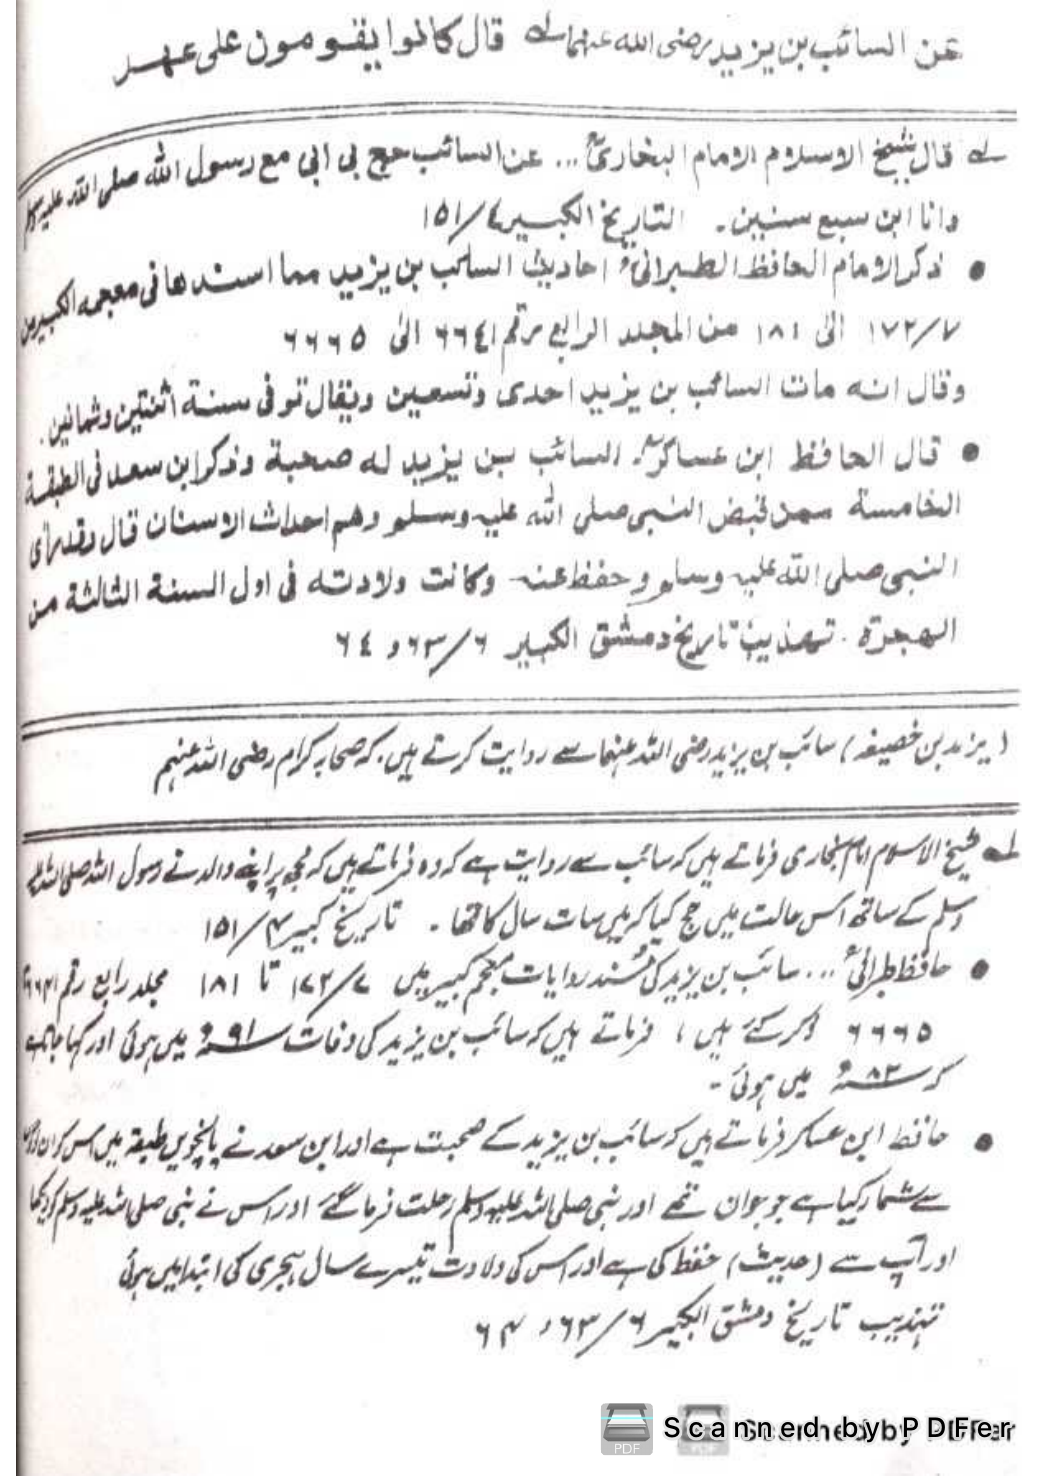 عن السائب بن يزيد رضى الله عنهما لے قال كانوا يقومون على عهد
لے قال شيخ الاسلام الامام البخارىؒ ... عن السائب حج بى ابى مع رسول الله صلى الله عليه وسلم
وانا ابن سبع سنين ۔ التاريخ الكبير ٤/١٥١
● ذكر الامام الحافظ الطبرانىؒ احاديث السائب بن يزيد مما اسندها فى معجمه الكبير من
٧/١٧٢ الى ١٨١ من المجلد الرابع رقم ٦٦٤١ الى ٦٦٦٥
وقال انه مات السائب بن يزيد احدى وتسعين ويقال توفى سنة اثنتين وثمانين .
● قال الحافظ ابن عساكرؒ السائب بن يزيد له صحبة وذكر ابن سعد فى الطبقة
الخامسة ممن قبض النبى صلى الله عليه وسلم وهم احداث الاسنان قال وقد رأى
النبى صلى الله عليه وسلم وحفظ عنه وكانت ولادته فى اول السنة الثالثة من
الهجرة . تهذيب تاريخ دمشق الكبير ٦/٦٣ و ٦٤
(یزید بن خصیفہ) سائب بن یزید رضی اللہ عنہما سے روایت کرتے ہیں کہ صحابہ کرام رضی اللہ عنہم
لے شیخ الاسلام امام بخاری فرماتے ہیں کہ سائب سے روایت ہے کہ وہ فرماتے ہیں کہ مجھ پر اپنے والد نے رسول اللہ صلی اللہ علیہ
وسلم کے ساتھ اس حالت میں حج کیا کہ میں سات سال کا تھا ۔ تاریخ کبیر ۴/۱۵۱
● حافظ طبرانیؒ ... سائب بن یزید کی مُسند روایات معجم کبیر میں ۷/۱۷۲ تا ۱۸۱ مجلد رابع رقم ۶۶۴۱
۶۶۶۵ ذکر کئے ہیں ، فرماتے ہیں کہ سائب بن یزید کی وفات سنہ ۹۱ھ میں ہوئی اور کہا جاتا ہے
کہ سنہ ۸۲ھ میں ہوئی ۔
● حافظ ابن عساکر فرماتے ہیں کہ سائب بن یزید کے صحبت ہے اور ابن سعد نے پانچویں طبقہ میں اس کو ان
سے شمار کیا ہے جو جوان تھے اور نبی صلی اللہ علیہ وسلم رحلت فرما گئے اور اس نے نبی صلی اللہ علیہ وسلم کو دیکھا
اور آپ سے (حدیث) حفظ کی ہے اور اس کی ولادت تیسرے سال ہجری کی ابتدا میں ہوئی
تہذیب تاریخ دمشق الکبیر ۶/۶۳ و ۶۴
Scanned by PDFer